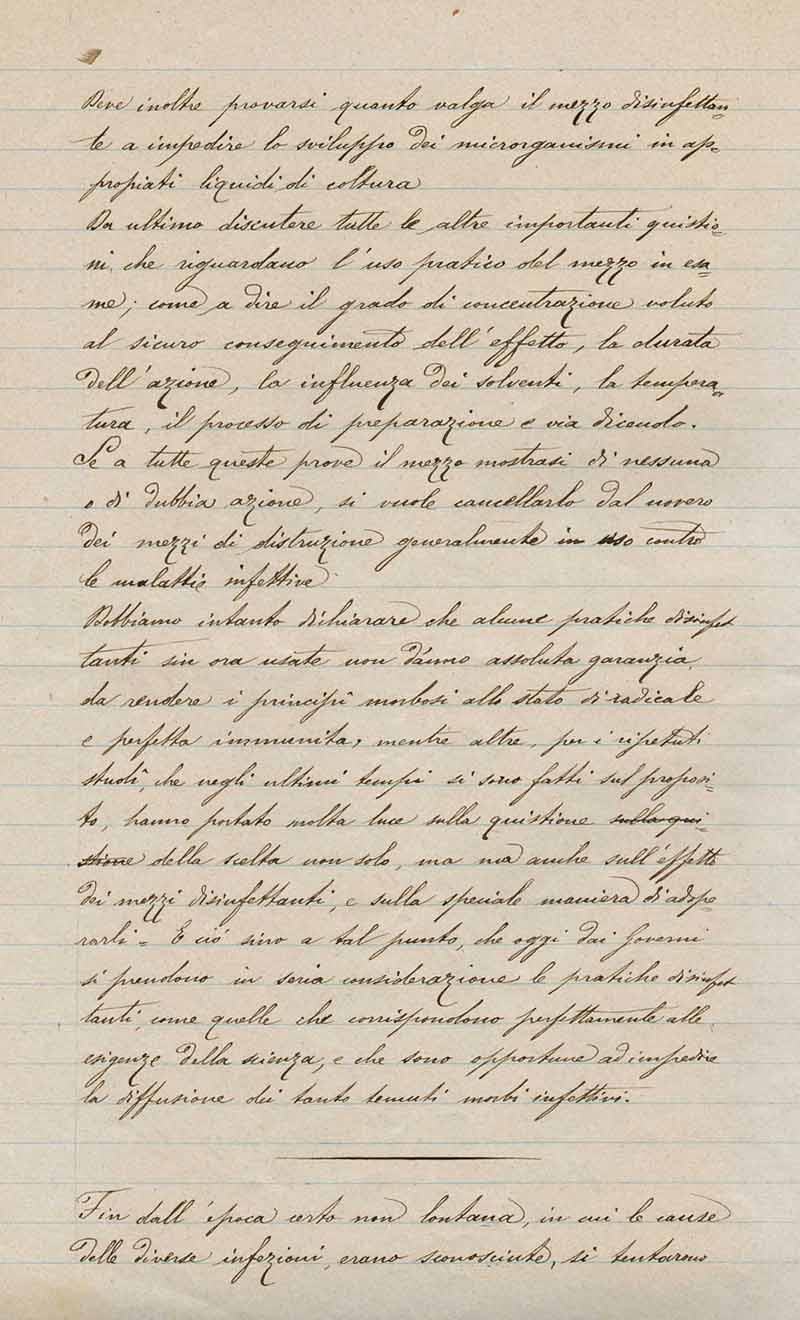 Deve inoltre provarsi quanto valga il mezzo disinfettan=
te a impedire lo sviluppo dei microrganismi in ap=
propiati liquidi di coltura
Da ultimo discutere tutte le altre importanti quistio=
ni, che riguardano l'uso pratico del mezzo in esa=
me; come a dire il grado di concentrazione voluto
al sicuro conseguimento dell'effetto, la durata
dell'azione, la influenza dei solventi, la tempera=
tura, il processo di preparazione e via dicendo.
Se a tutte queste prove il mezzo mostrasi di nessuna
o di dubbia azione, si vuole cancellarlo dal novero
dei mezzi di distruzione generalmente in uso contro
le malattie infettive
Dobbiamo intanto dichiarare che alcune pratiche disinfet
tanti sin ora usate non dànno assoluta garanzia,
da rendere i principî morbosi allo stato di radicale
e perfetta immunita, mentre altre, per i ripetuti
studî, che negli ultimi tempi si sono fatti sul proposi=
to, hanno portato molta luce sulla quistione sulla qui=
stione della scelta non solo, ma ma anche sull'effetto
dei mezzi disinfettanti, e sulla speciale maniera di adope
rarli = E ciò sino a tal punto, che oggi dai Governi
si prendono in seria considerazione le pratiche disinfet
tanti, come quelle che corrispondono perfettamente alle
esigenze della scienza, e che sono opportune ad impedire
la diffusione dei tanto temuti morbi infettivi.
Fin dall'época certo non lontana, in cui le cause
delle diverse infezioni, erano sconosciute, si tentarono